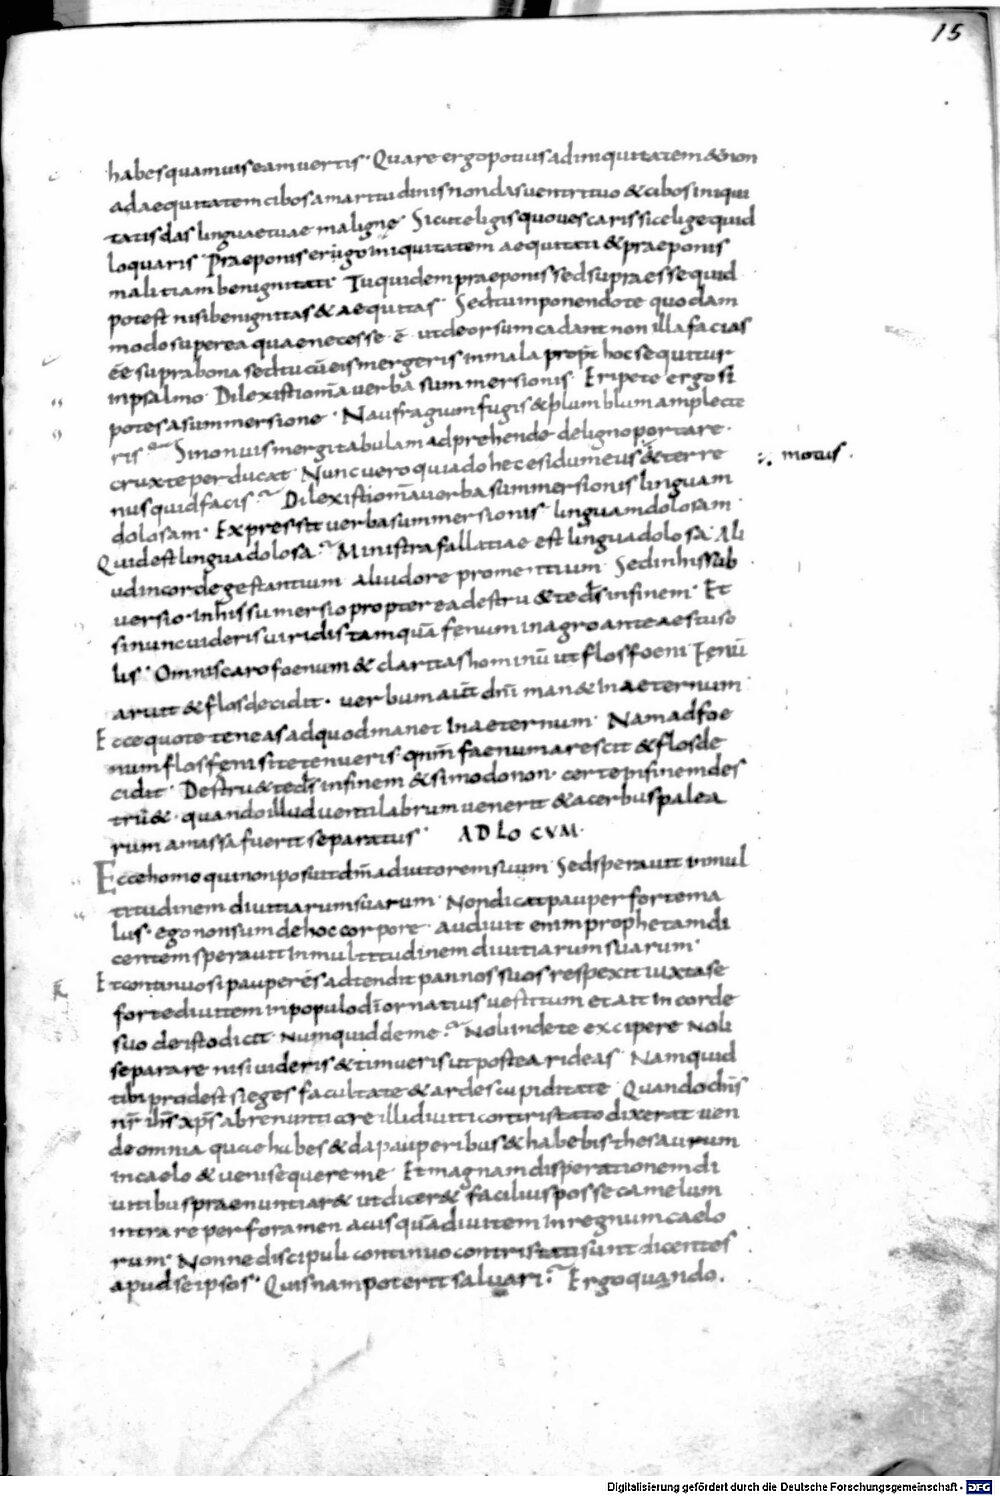 15
habes quam uis eam uertis · Quare ergo potius ad iniquitatem & non
ad aequitatem cibos amaritudinis non das uentri tuo & cibos iniqui
tatis das linguae tuae maligne · Sicut eligis quo uescaris sic elige quid
loquaris · Praeponis iniquitatem aequitati & praeponis
malitiam benignitati · Tu quidem praeponis sed supra esse quid
potest nisi benignitas & aequitas · Sed tu inponendo te quodam
modo super ea quae necesse · ē · ut deorsum cadant non illa facias
ēe supra bona sed tu cū eis mergeris in mala · hoc sequitur
in psalmo · Dilexisti om̄a uerba summersionis · Eripe te ergo si
potes a summersione · Naufragium fugis & plumblum amplecte
ris · Si non uis mergi tabulam adprehende · de ligno portare ·
crux te perducat · Nunc uero quia do hec es & terre
nus quid facis · Dilexisti om̄a uerba summersionis linguam
:. motus .
dolosam · Expressit uerba summersionis · linguam dolosam ·
Quid est lingua dolosa · Ministra fallatiae est lingua dolosa · Ali
ud in corde gestantium aliud ore promentium · Sed in his sub
uersio · in his sumersio propterea destru& te dš in finem · Et
si nunc uideris uiridis tamquā fenum in agro ante aestus so
lis · Omnis caro foenum & claritas hominū ut flos foeni · Fenū
aruit & flos decidit · uerbum aūt dn̄i man& in aeternum ·
Ecce quo te teneas ad quod manet in aeternum · Nam ad foe
num flos feni si te tenueris · qnm̄ faenum arescit & flos de
cidit · Destru& te dš in finem & si modo non · certe in finem des
tru& · quando illud uentilabrum uenerit & aceruus palea
rum a massa fuerit separatus · AD LOCVM·
Ecce homo qui non posuit dm̄ adiutorem suum · Sed sperauit in mul
titudinem diuitiarum suarum · Non dicat pauper forte ma
lus · ego non sum de hoc corpore · Audiuit enim prophetam di
centem sperauit in multitudinem diuitiarum suarum ·
Et continuo si pauper ēs adtendit pannos suos respexit iuxta se
forte diuitem in populo dī ornatius uestitum et ait in corde
suo de isto dicit Numquid de me · Noli inde te excipere Noli
separare nisi uideris & timueris ut postea rideas · Nam quid
tibi prodest si eges facultate & ardes cupiditate · Quando dn̄s
nr̄ ih̄s xp̄s abrenuntiare illi diuiti contristato dixerat uen
de omnia quae habes & da pauperibus & habebis thesaurum
in caelo & ueni sequere me · Et magnam disperationem di
uitibus praenuntiar& ut dicer& facilius posse camelum
intrare per foramen acus quā diuitem in regnum caelo
rum · Nonne discipuli continuo contristati sunt dicentes
apud se ipsos · Quis nam poterit saluari · Ergo quando ·
Digitalisierung gefördert durch die Deutsche Forschungsgemeinschaft - DFG